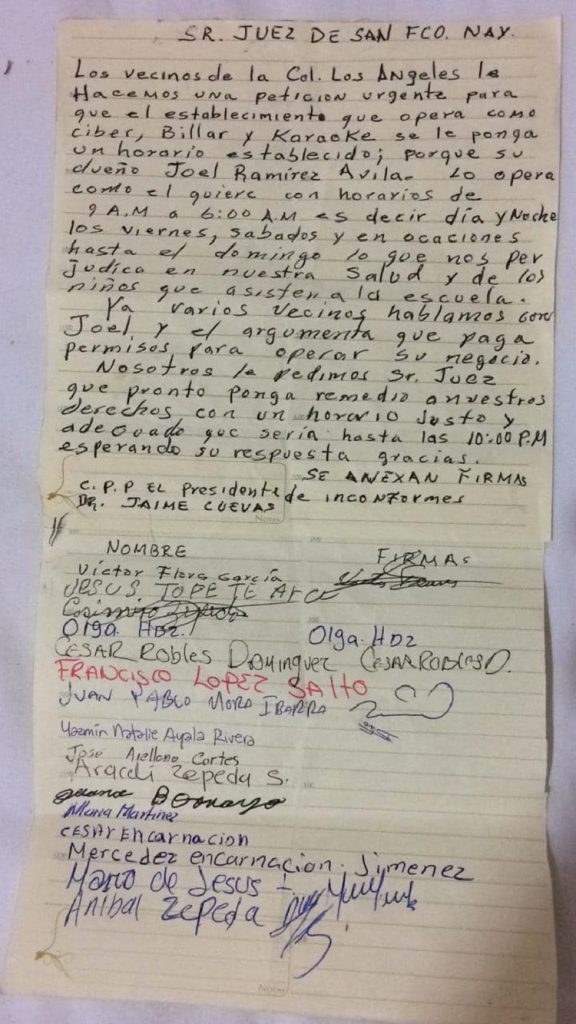 SR. JUEZ DE SAN FCO. NAY.
Los vecinos de la Col. Los Angeles le
Hacemos una peticion urgente para
que el establecimiento que opera como
ciber, Billar y Karaoke se le ponga
un horario establecido; porque su
dueño Joel Ramírez Avila. Lo opera
como el quiere con horarios de
9 A.M a 6:00 A.M es decir día y Noche
los viernes, sabados y en ocaciones
hasta el domingo lo que nos per
judica en nuestra salud y de los
niños que asisten a la escuela.
Ya varios vecinos hablamos con
Joel y el argumenta que paga
permisos para operar su negocio.
Nosotros le pedimos Sr. Juez
que pronto ponga remedio a nuestros
derechos con un horario justo y
adecuado que sería hasta las 10:00 P.M
esperando su respuesta gracias.
SE ANEXAN FIRMAS
C.P.P EL Presidente de inconformes
DR. JAIME CUEVAS
NOTAS
NOMBRE FIRMAS
Victor Flores García
JESUS TOPETE
Olga. HDZ. Olga. HDZ
CESAR ROBLES Dominguez CESAR ROBLES D.
FRANCISCO LOPEZ SALTO
JUAN PABLO MORA IBARRA
Yazmin Natalie Ayala Rivera
Jose Arellano Cortes
Araceli Zepeda S.
Maria Martinez
CESAR ENCARNACION
Mercedez encarnacion. Jimenez
Mario de Jesus
Anibal Zepeda
NOTAS